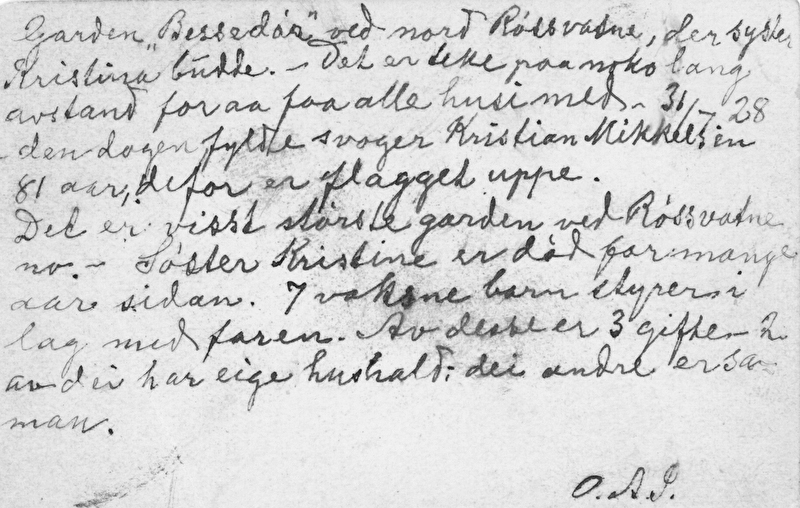 Garden „Bessedør” ved nord Røssvatne, der syster
Kristina budde. – Det er teke paa noko lang
avstand for aa faa alle husi med – 31/7 28
den dagen fylde svoger Kristian Mikkelsen
81 aar, defor er flagget uppe.
Det er visst største garden ved Røssvatne
no. – Søster Kristine er død for mange
aar sidan. 7 vaksne barn styrer i
lag med faren. Av desse er 3 gifte – 2
av dei har eige hushald; dei andre er sa-
man.
O. A. S.